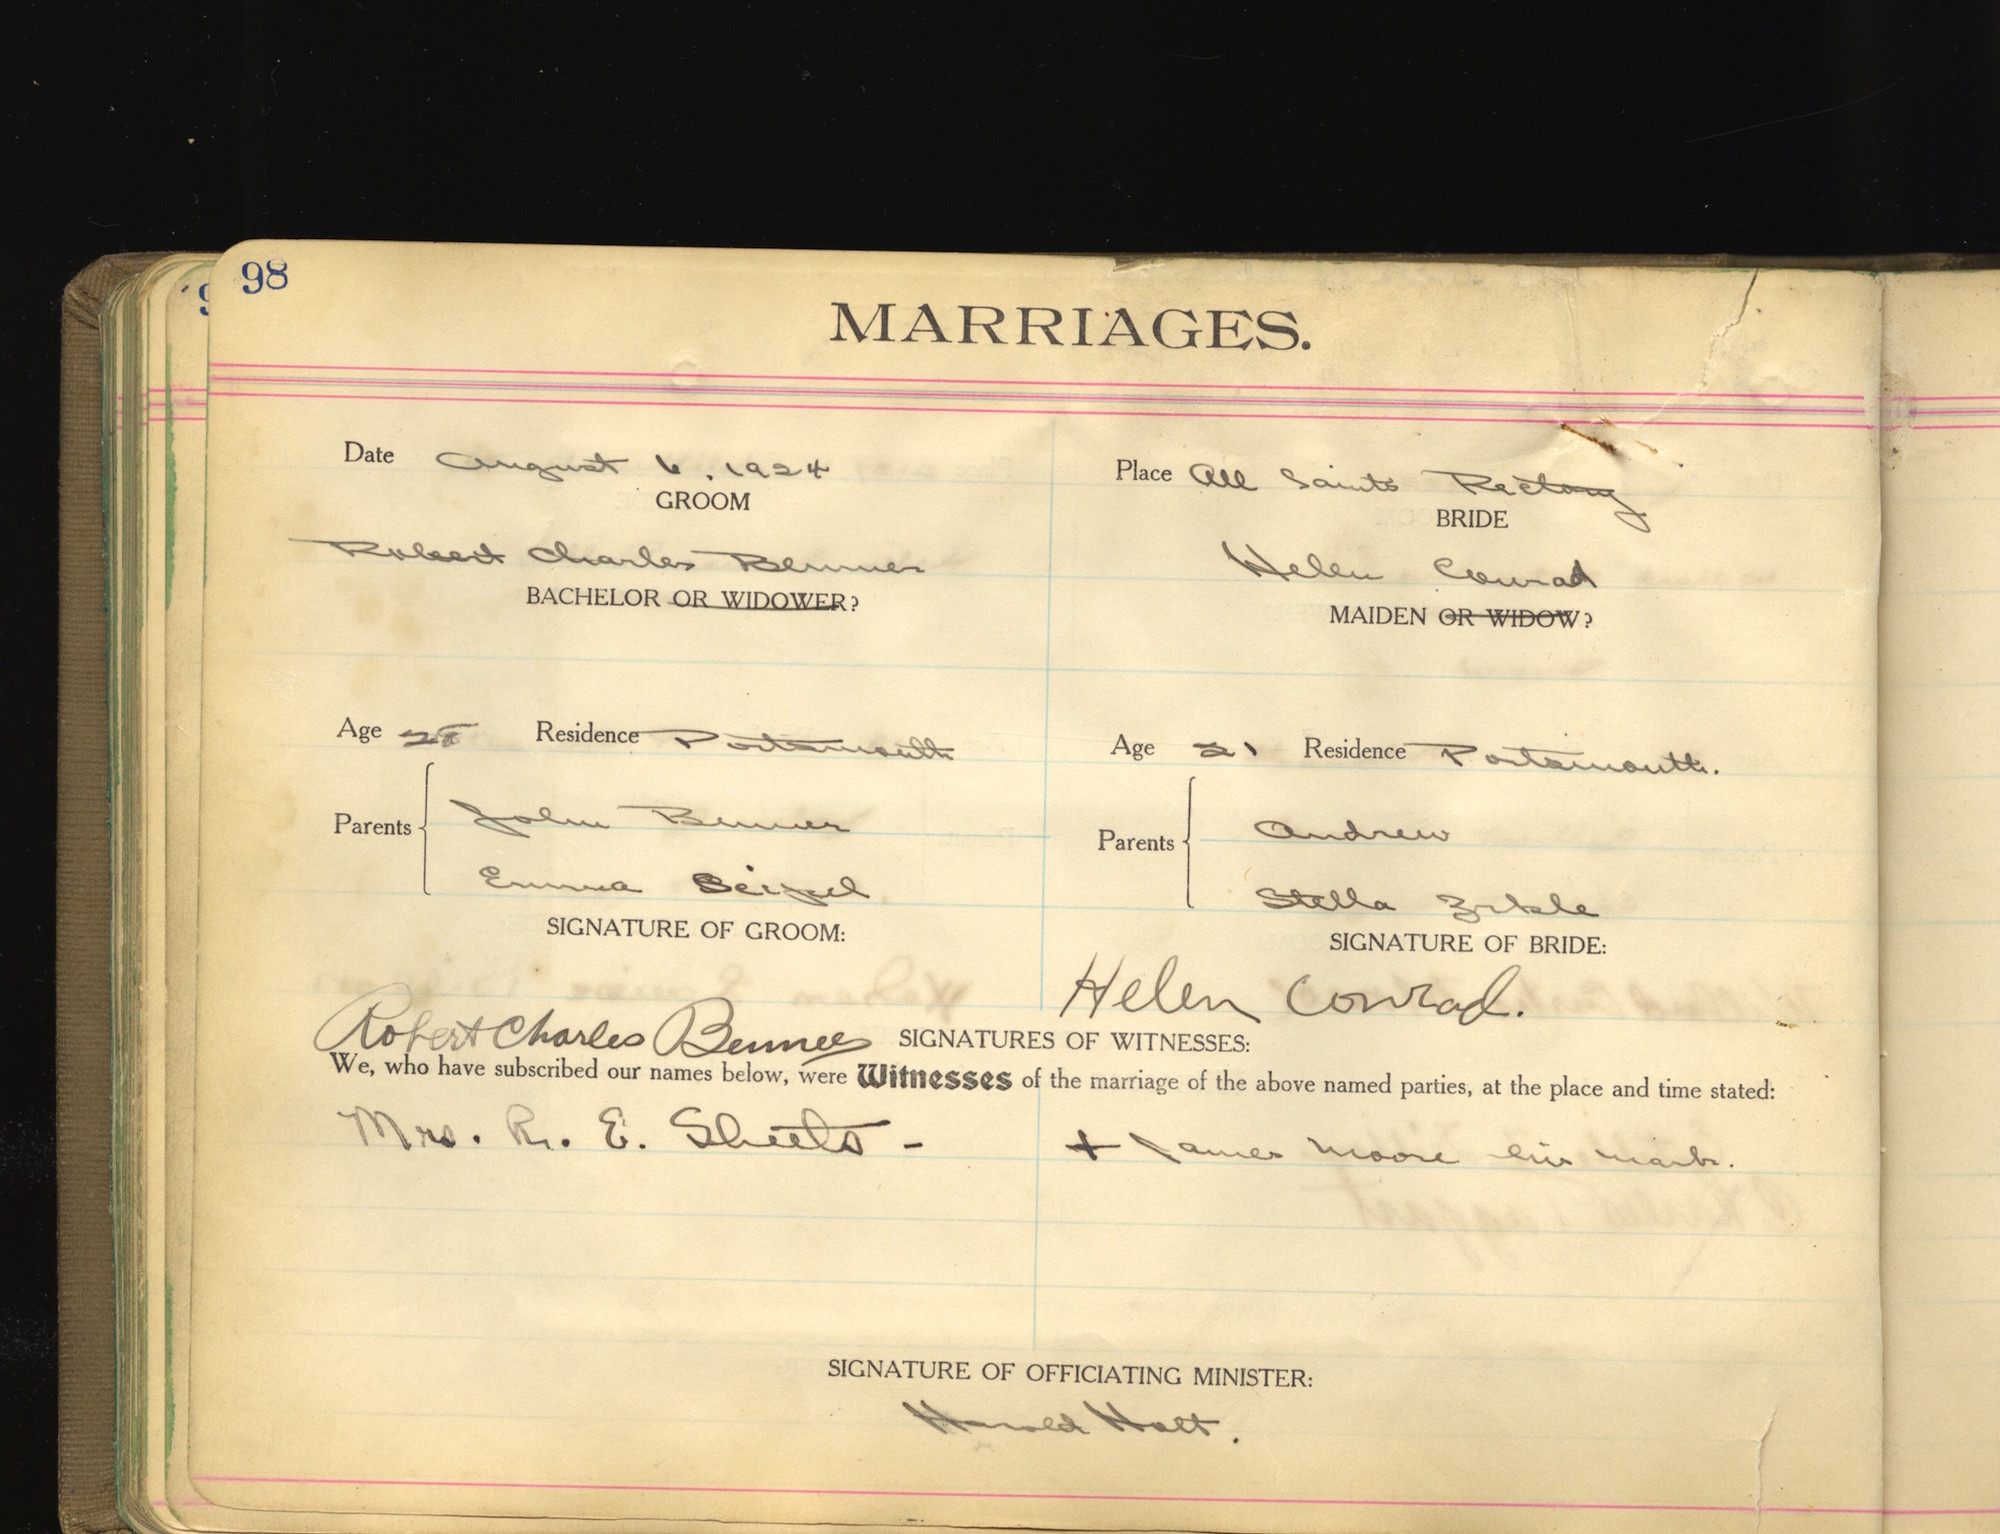 98
MARRIAGES.
Date August 6, 1924
Place All Saints Rectory
GROOM
BRIDE
Robert Charles Benner
Helen Conrad
BACHELOR OR WIDOWER?
MAIDEN OR WIDOW?
Age 28 Residence Portsmouth
Age 21 Residence Portsmouth.
Parents
John Benner
Emma Seipel
Parents
Andrew
Stella Zirkle
SIGNATURE OF GROOM:
SIGNATURE OF BRIDE:
Robert Charles Benner
Helen Conrad.
SIGNATURES OF WITNESSES:
We, who have subscribed our names below, were Witnesses of the marriage of the above named parties, at the place and time stated:
Mrs. R. E. Sheets -
+ James Moore his mark.
SIGNATURE OF OFFICIATING MINISTER:
Harold Holt.